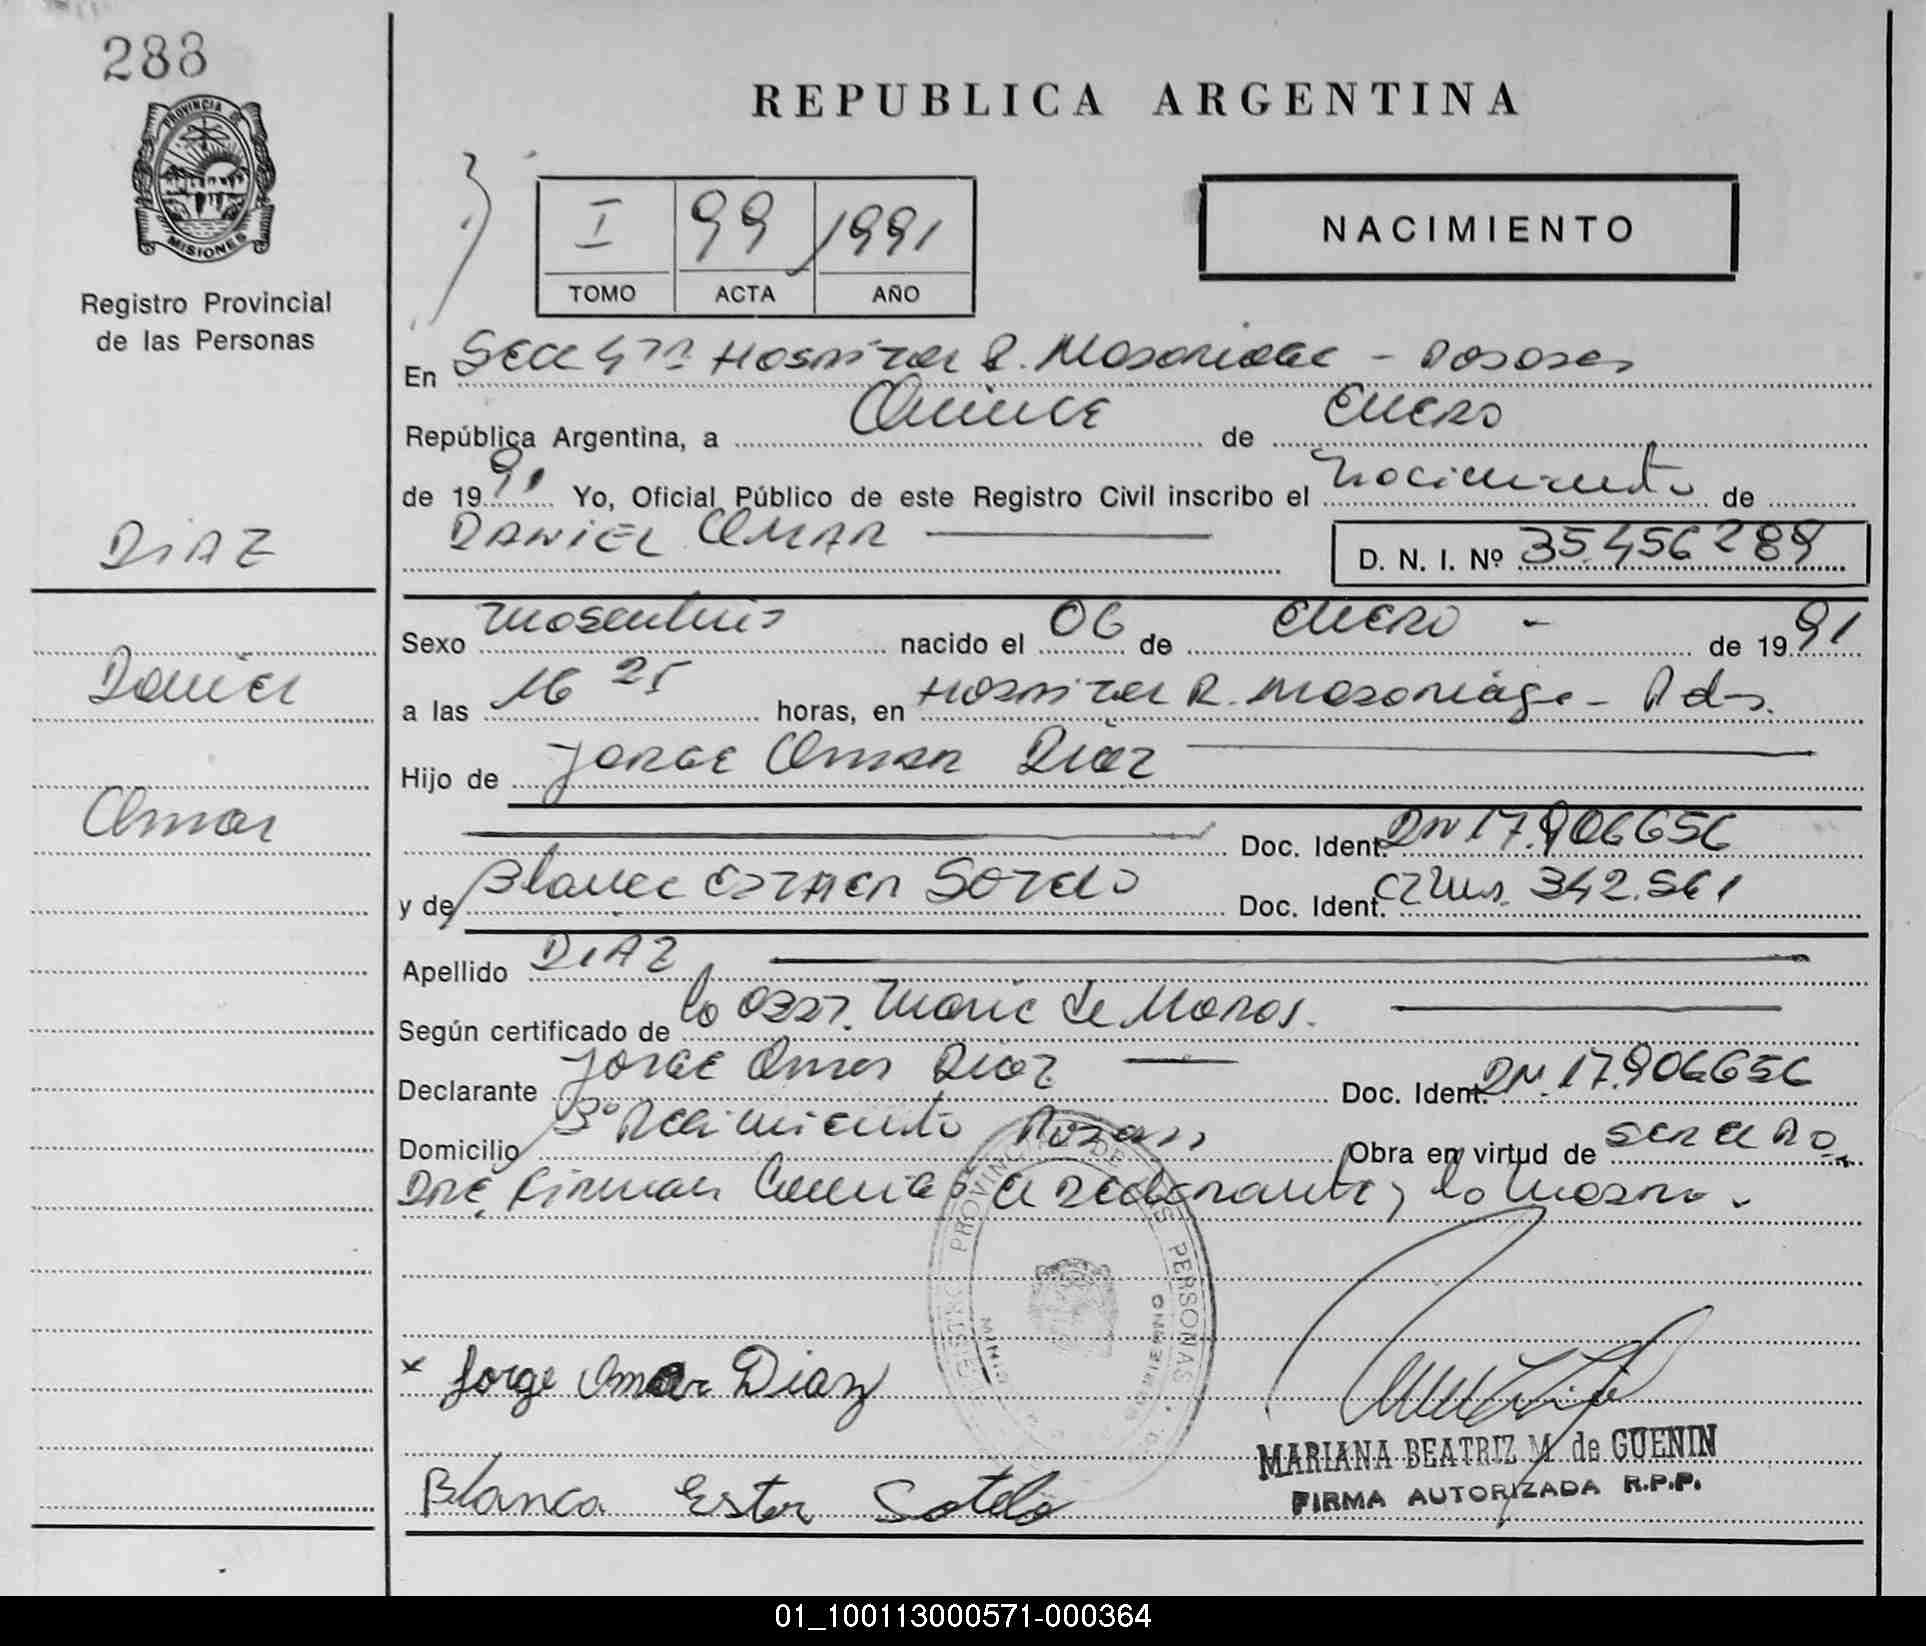 288
PROVINCIA DE
MISIONES
Registro Provincial
de las Personas
DIAZ
Daniel
Omar
REPUBLICA ARGENTINA
I 99 1991
TOMO ACTA AÑO
NACIMIENTO
En Secc 4ta Hospital R. Madariaga - Posadas
República Argentina, a Quince de Enero
de 1991 Yo, Oficial Público de este Registro Civil inscribo el nacimiento de
DANIEL OMAR
D. N. I. Nº 35.456289
Sexo masculino nacido el 06 de Enero - de 1991
a las 16 25 horas, en Hospital R. Madariaga - Pdas.
Hijo de Jorge Omar Diaz
Doc. Ident. DNI 17.906656
y de Blanca Ester Sotelo Doc. Ident. 342.561
Apellido DIAZ
Según certificado de la Obst. Maria de
Declarante Jorge Omar Diaz Doc. Ident. DNI 17.906656
Domicilio Posadas Obra en virtud de
Firman el declarante y la madre.
REGISTRO PROVINCIAL DE LAS PERSONAS
Jorge Omar Diaz
Blanca Ester Sotelo
MARIANA BEATRIZ M. de GUENIN
FIRMA AUTORIZADA R.P.P.
01_100113000571-000364